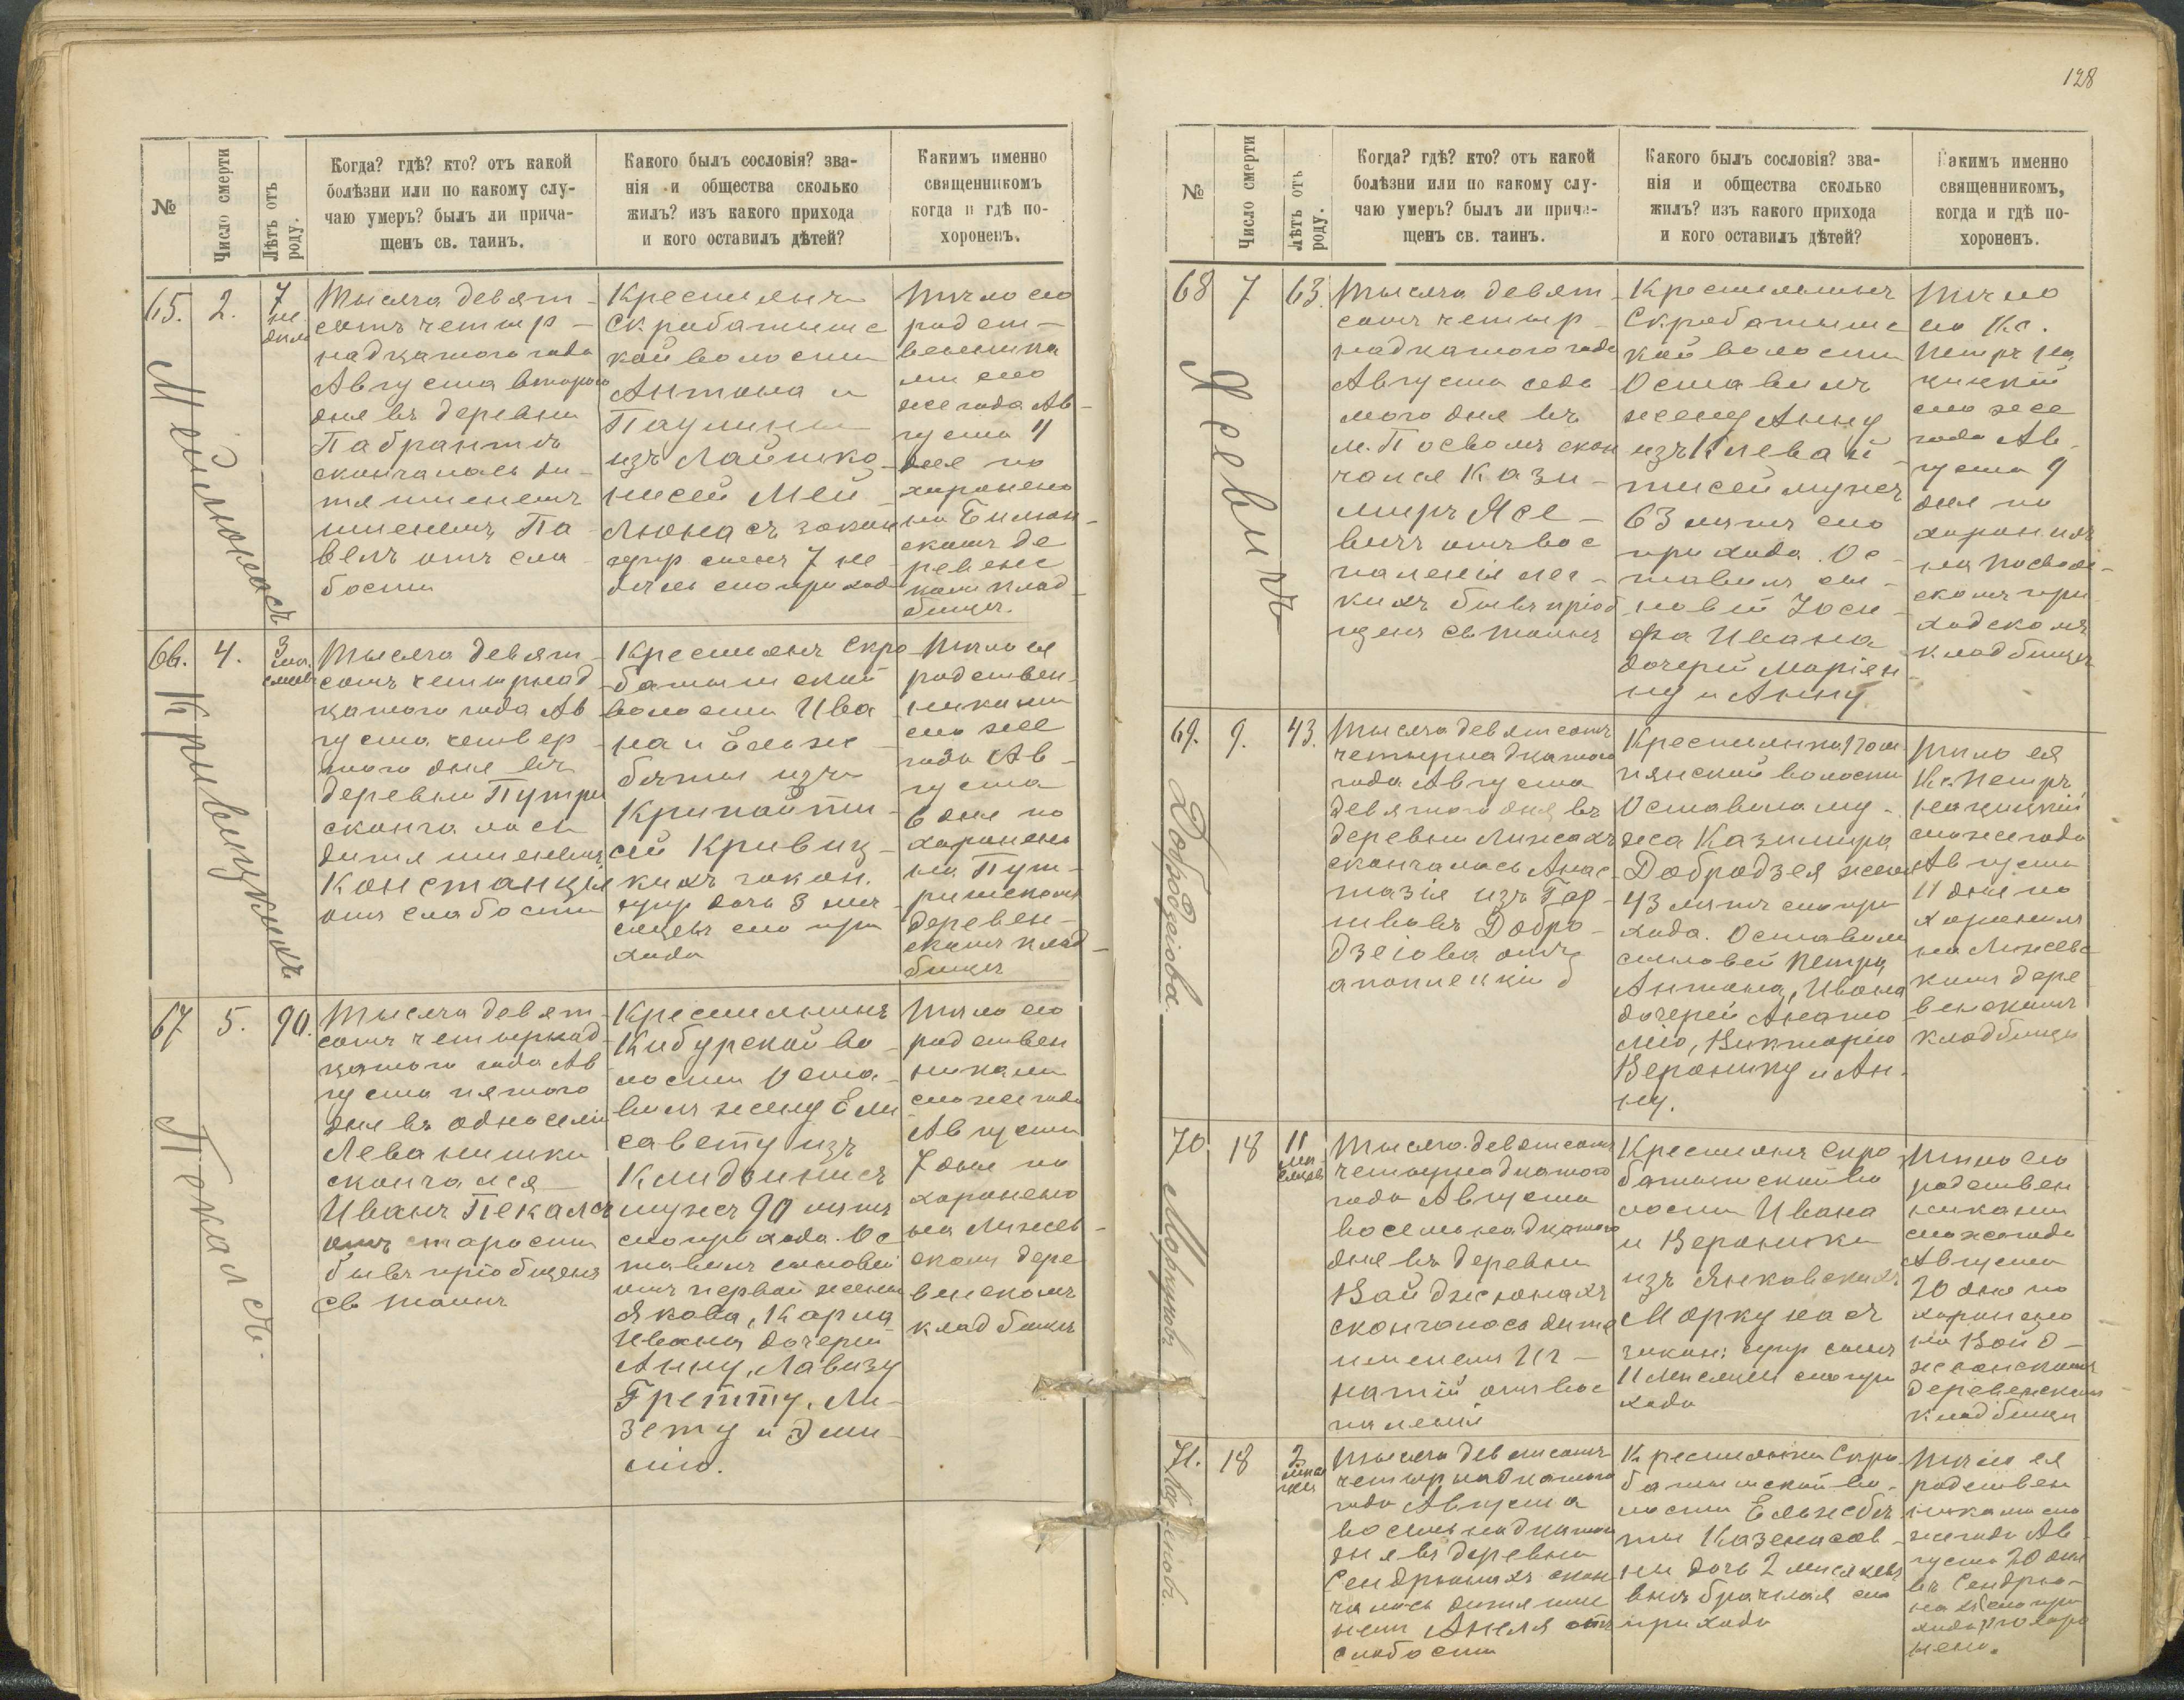 №
Число смерти
Лѣтъ отъ роду.
Когда? гдѣ? кто? отъ какой
болѣзни или по какому слу-
чаю умеръ? былъ ли прича-
щенъ св. таинъ.
Какого былъ сословія? зва-
нія и общества сколько
жилъ? изъ какого прихода
и кого оставилъ дѣтей?
Какимъ именно
священникомъ
когда и гдѣ по-
хороненъ.
65.
2.
7
не
дѣль
Мейлюнасъ
Тысяча девят-
сотъ четыр-
надцатого года
Августа второго
дня въ деревни
Пабрантъ
скончалась ди-
тя именемъ
именемъ Па-
велъ отъ сла-
бости
Крестьянъ
Скробатышс
кой волости
Антона и
Паулины
изъ
Мей-
люнасъ закон
супр сынъ 7 не
дѣль сего прихода
Тѣло его
родст-
венника
ми сего
же года Ав-
густа 4
дня по
хоронено
на
скомъ де
ревенс
комъ клад-
бищѣ.
66.
4.
3
мѣ.
сяцев
Кривицкихъ
Тысяча девят-
сотъ четырнад-
цатого года Ав
густа четвер-
того дня въ
деревни Путри
скончалась
дитя именемъ
Констанція
отъ слабости
Крестьянъ Скро
батышской
волости Ива-
на и Ельжи-
беты изъ
сей Кривиц-
кихъ закон.
супр дочь 3 мѣ-
сяцевъ сего при
хода
Тѣло ея
родствен-
никами
сего же
года Ав-
густа
6 дня по
хоронено
на Пут-
ришскомъ
деревен-
скомъ клад-
бищѣ
67
5.
90.
Пекалсъ.
Тысяча девят-
сотъ четырнад-
цатого года Ав
густа пятого
дня въ односелiи
Леванишки
скончался
Иванъ Пекалсъ
отъ старости
бывъ пріобщенъ
Св Таинъ
Крестьянинъ
Кибурской во-
лости Оста-
вилъ жену Ели
савету изъ
мужъ 90 лѣтъ
сего прихода. Ос
тавилъ сыновей
отъ первой жены
Якова, Карла
Ивана дочерей
Анну, Лавизу
Гретту, Ли-
зету и Эми-
лію.
Тѣло его
родствен
никами
сего же года
Августа
7 дня по
хоронено
на Лижев-
скомъ дере
венскомъ
кладбищѣ
128
№
Число смерти
Лѣтъ отъ роду.
Когда? гдѣ? кто? отъ какой
болѣзни или по какому слу-
чаю умеръ? былъ ли прича-
щенъ св. таинъ.
Какого былъ сословія? зва-
нія и общества сколько
жилъ? изъ какого прихода
и кого оставилъ дѣтей?
Какимъ именно
священникомъ,
когда и гдѣ по-
хороненъ.
68
7
63.
Ясевичъ
Тысяча девят-
сотъ четыр-
надцатого года
Августа седь
мого дня въ
м. Посволь скон
чался Кази-
миръ Ясе-
вичъ отъ вос
паленія лег-
кихъ бывъ пріоб
щенъ Св Таинъ
Крестьянинъ
Скробатышс
кой волости
Оставилъ
жену Анну
изъ
мужъ
63 лѣтъ сего
прихода. Ос-
тавилъ сы-
новей Іоси-
фа Ивана
дочерей Маріан-
ну и Анну
Тѣло
его Кс.
Петръ На
цицкій
сего же
года Ав-
густа 9
дня по
хоронилъ
на Посволь-
скомъ при
ходскомъ
кладбищѣ
69.
9.
43.
Добродзѣіова.
Тысяча девятьсотъ
четырнадцатого
года Августа
девятого дня въ
деревни Лижахъ
скончалась Анас-
тазія изъ Гор-
Добро-
дзеіова отъ
апоплекціи
Крестьянка
волости
Оставила му-
жа Казимира
Добродзея жена
43 лѣтъ сего при
хода. Оставила
сыновей Петра
Антона, Ивана
дочерей Анато
лію, Викторію
Веронику и Ан-
ну.
Тѣло ея
Кс. Петръ
Нацицкій
сего же года
Августа
11 дня по
хоронилъ
на Лижевс
комъ дере
венскомъ
кладбищѣ
70.
18
11
мѣ
сяцевъ
Моркунасъ
Тысяча девятьсотъ
четырнадцатого
года Августа
восемьнадцатого
дня въ деревни
Вайджюнахъ
скончалось дитя
именемъ Иг-
натій отъ вос
паленія
Крестьянъ Скро
батышской во
лости Ивана
и Вероники
изъ Янковскихъ
Моркунасъ
закон: супр сынъ
11 мѣсяцевъ сего при
хода
Тѣло его
родствен
никами
сего же года
Августа
20 дня по
хоронено
на Вайд-
жюнскомъ
деревенскомъ
кладбищѣ
71.
18
2
мѣся
цевъ
Тысяча девятьсотъ
четырнадцатого
года Августа
восемьнадцатого
дня въ деревни
Сендрюнахъ скон
чалась дитя име
немъ Анеля отъ
слабости
Крестьянки Скро
батышской во-
лости Ельжебѣ
ты Казенасов-
ны дочь 2 мѣсяцевъ
внѣ брачная сего
прихода
Тѣло ея
родствен
никами сего
же года Ав
густа 20 дня
въ Сендрю-
нахъ сего при
хода похоро
нено.